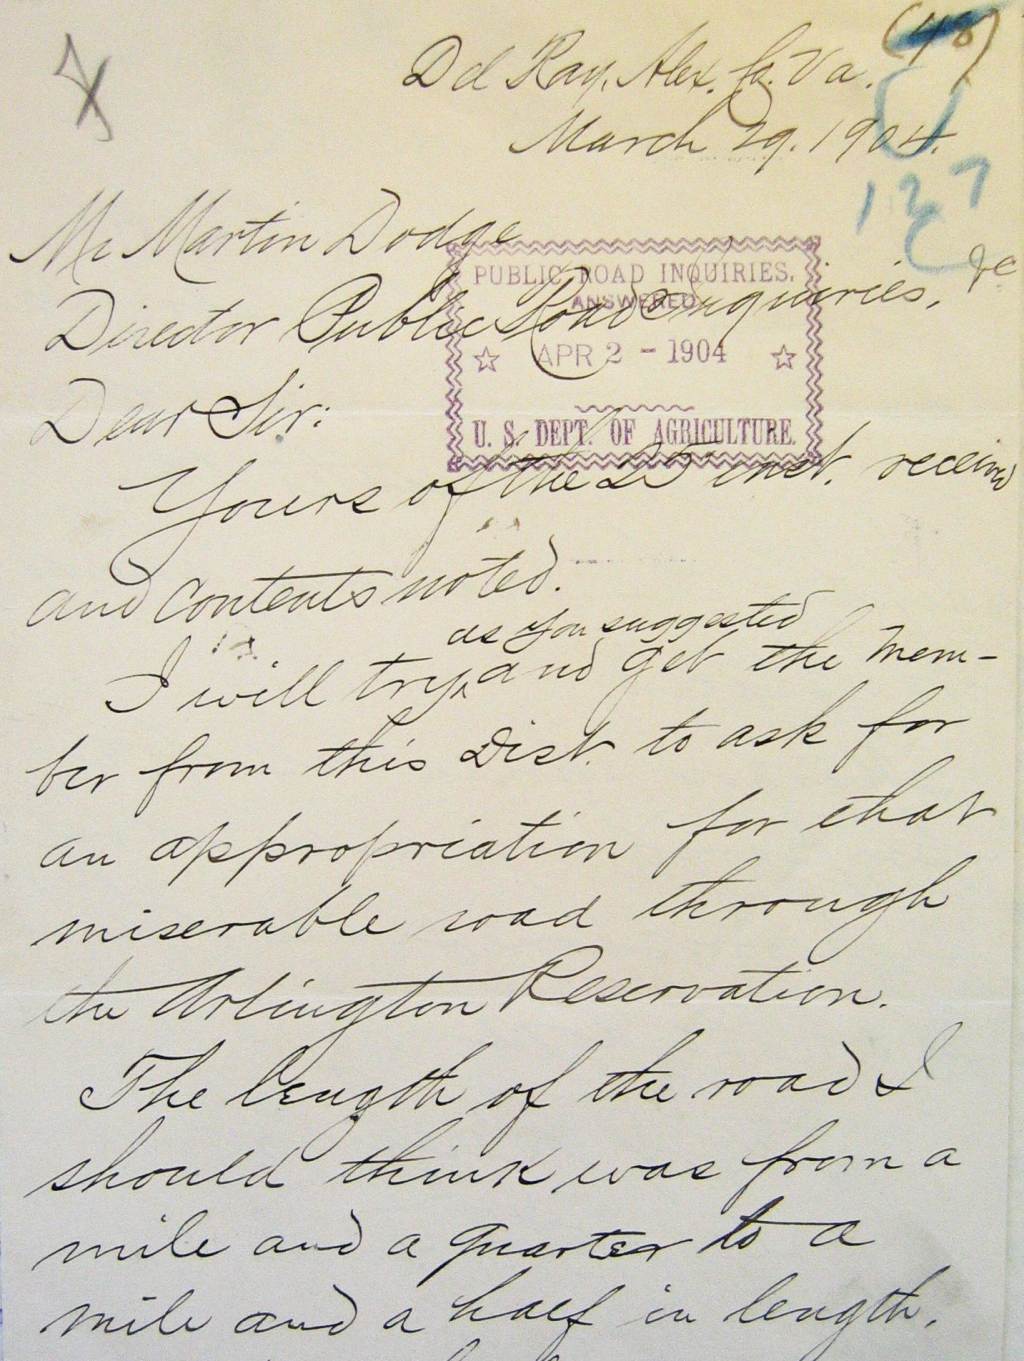 (48)
Del Ray, Alex. Co. Va.
March 29. 1904.
127
Mr Martin Dodge
Director Public Road Inquiries, &c
PUBLIC ROAD INQUIRIES.
ANSWERED
APR 2 - 1904
U. S. DEPT. OF AGRICULTURE.
Dear Sir:
Yours of the 25 inst. received
and contents noted.
as you suggested
I will try ^ and get the mem-
ber from this Dist. to ask for
an appropriation for that
miserable road through
the Arlington Reservation.
The length of the road I
should think was from a
mile and a quarter to a
mile and a half in length.